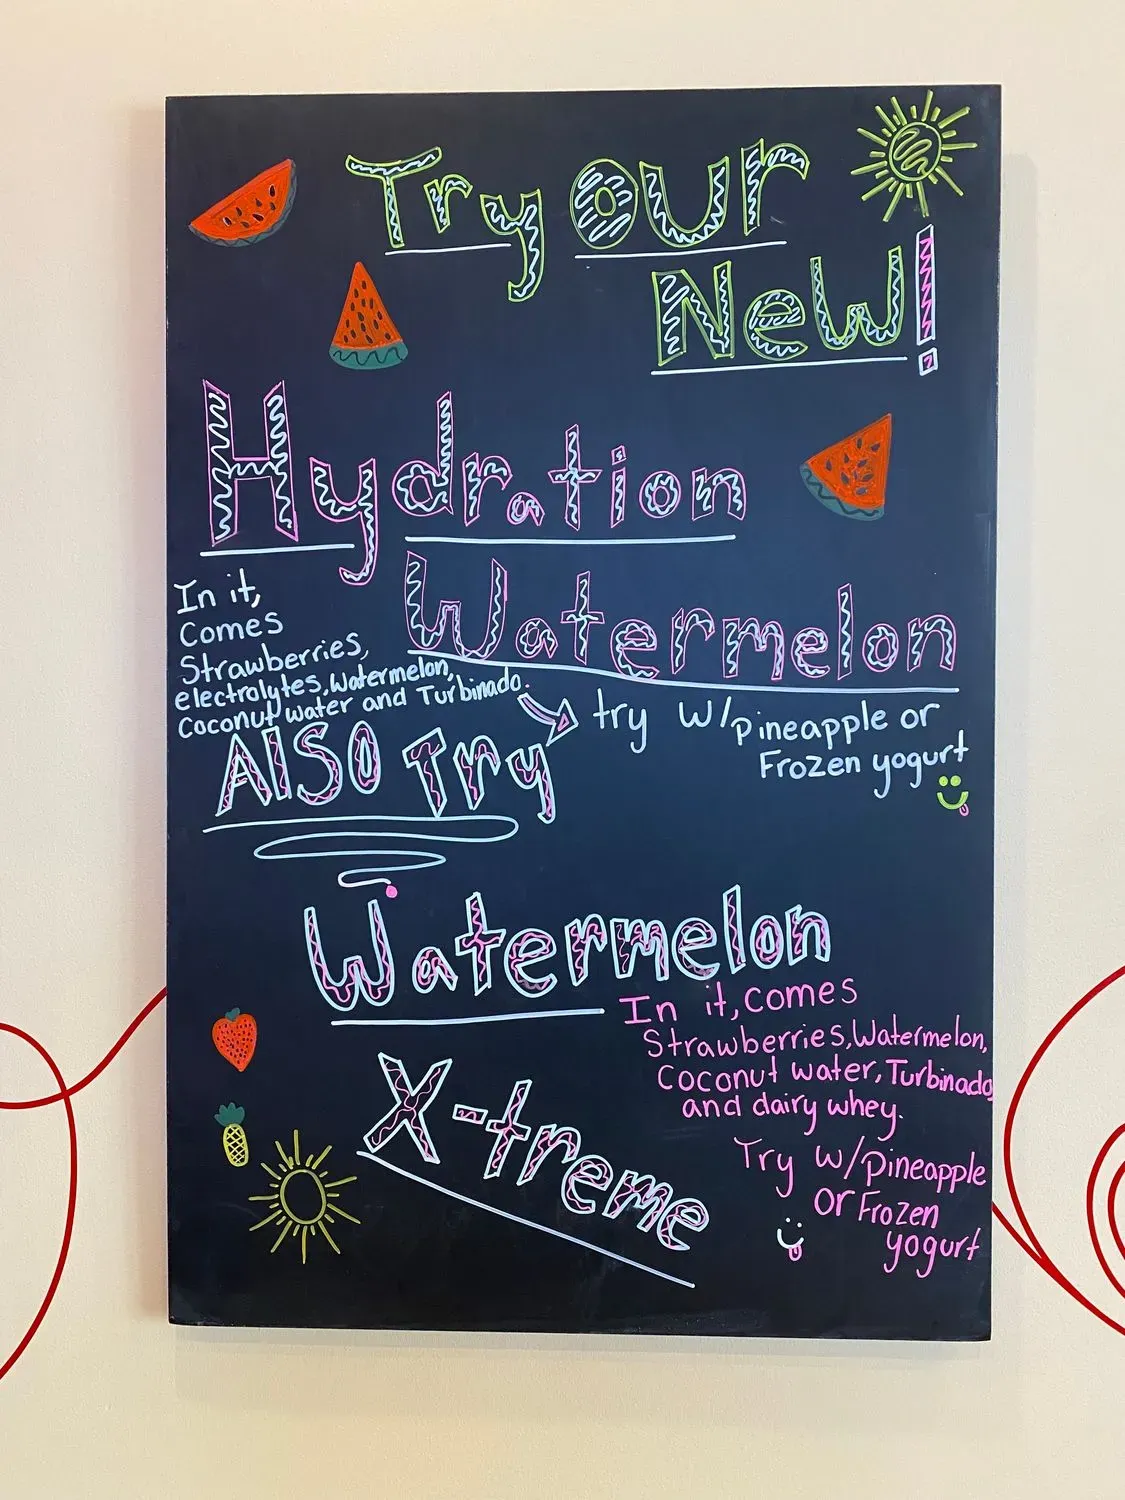 Try our
New!
Hydration
Watermelon
In it,
Comes
Strawberries,
electrolytes, Watermelon,
Coconut water and Turbinado.
try w/pineapple or
Frozen yogurt
AlSO Try
Watermelon
X-treme
In it, comes
Strawberries, Watermelon,
Coconut water, Turbinado,
and dairy whey.
Try w/pineapple
or Frozen
yogurt